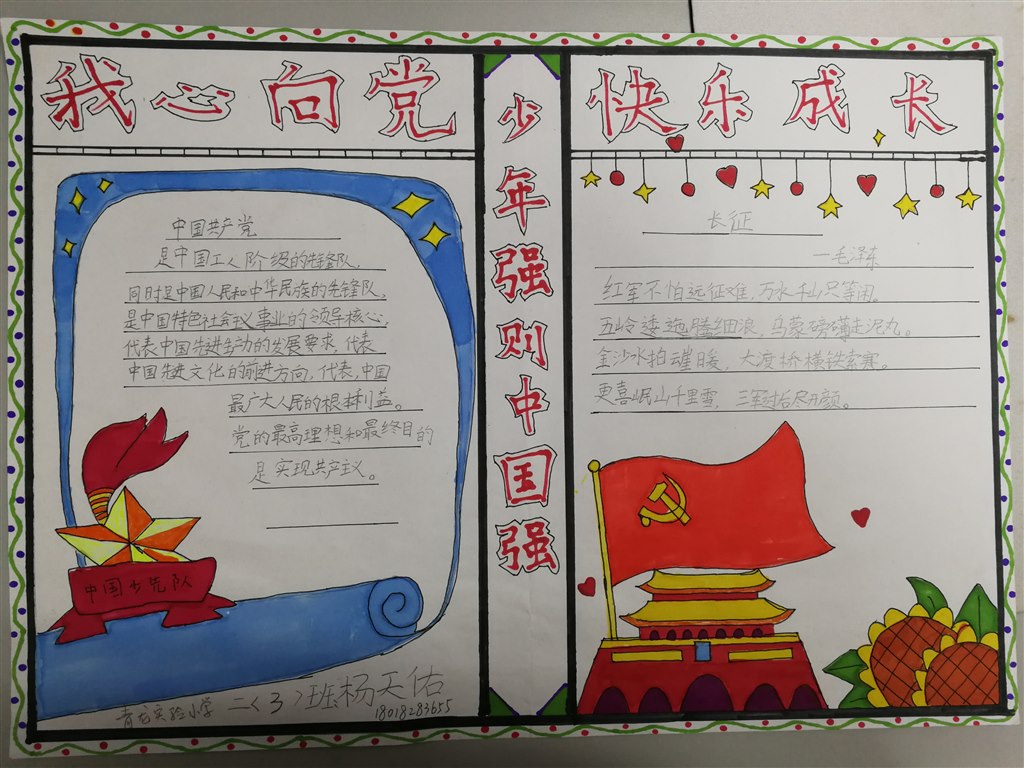 我心向党
中国共产党
是中国工人阶级的先锋队，
同时是中国人民和中华民族的先锋队，
是中国特色社会主义事业的领导核心，
代表中国先进生动的发展要求，代表
中国先进文化的前进方向，代表中国
最广大人民的根本利益。
党的最高理想和最终目的
是实现共产主义。
中国少先队
青龙实验小学 二〈3〉班杨天佑
18018283655
少年强则中国强
快乐成长
长征
—毛泽东
红军不怕远征难，万水千山只等闲。
五岭逶迤腾细浪，乌蒙磅礴走泥丸。
金沙水拍崖暖，大渡桥横铁索寒。
更喜岷山千里雪，三军过后尽开颜。